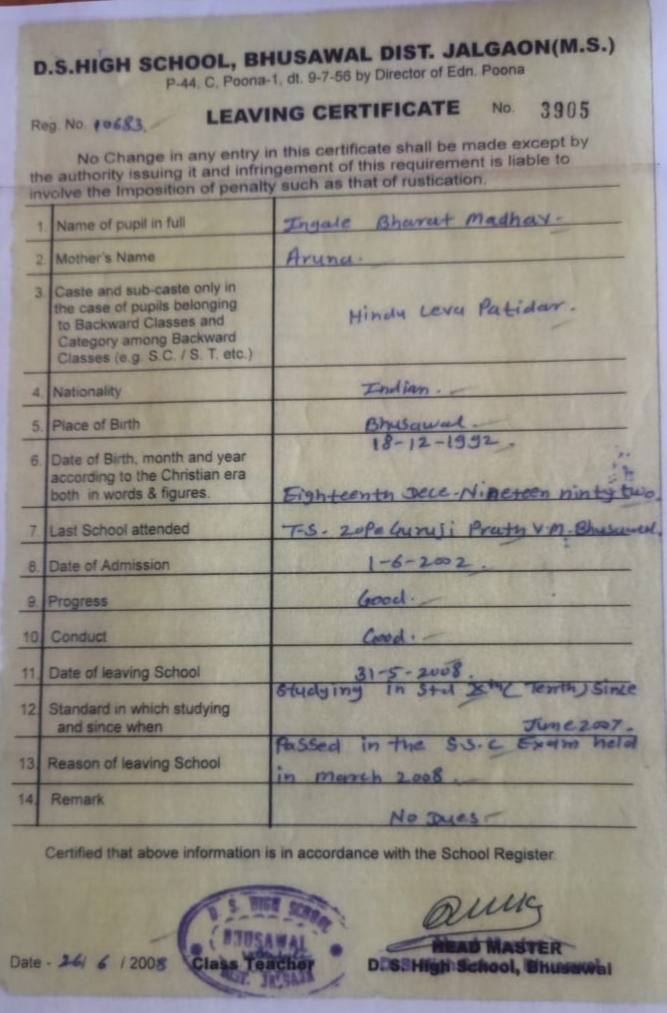 D.S.HIGH SCHOOL, BHUSAWAL DIST. JALGAON(M.S.)
P-44, C, Poona-1, dt. 9-7-56 by Director of Edn. Poona
Reg. No. 10683. LEAVING CERTIFICATE No. 3905
No Change in any entry in this certificate shall be made except by
the authority issuing it and infringement of this requirement is liable to
involve the Imposition of penalty such as that of rustication.
1. Name of pupil in full Ingale Bharat Madhav.
2. Mother's Name Aruna.
3. Caste and sub-caste only in
the case of pupils belonging
to Backward Classes and
Category among Backward
Classes (e.g. S.C. / S. T. etc.)
Hindu Leva Patidar.
4. Nationality Indian.
5. Place of Birth Bhusawal.
18-12-1992.
6. Date of Birth, month and year
according to the Christian era
both in words & figures.
Eighteenth Dece-Nineteen ninty two.
7. Last School attended T.S. Zope Guruji Prath V.M. Bhusawal.
8. Date of Admission 1-6-2002.
9. Progress Good.
10. Conduct Good.
11. Date of leaving School 31-5-2008.
Studying in Std Xth (Tenth) Since
12. Standard in which studying
and since when
June 2007.
Passed in the S.S.C Exam held
13. Reason of leaving School
in march 2008.
14. Remark
No Dues
Certified that above information is in accordance with the School Register.
D. S. HIGH SCHOOL
BHUSAWAL
HEAD MASTER
Date - 26/ 6 / 2008 Class Teacher D.S.High School, Bhusawal